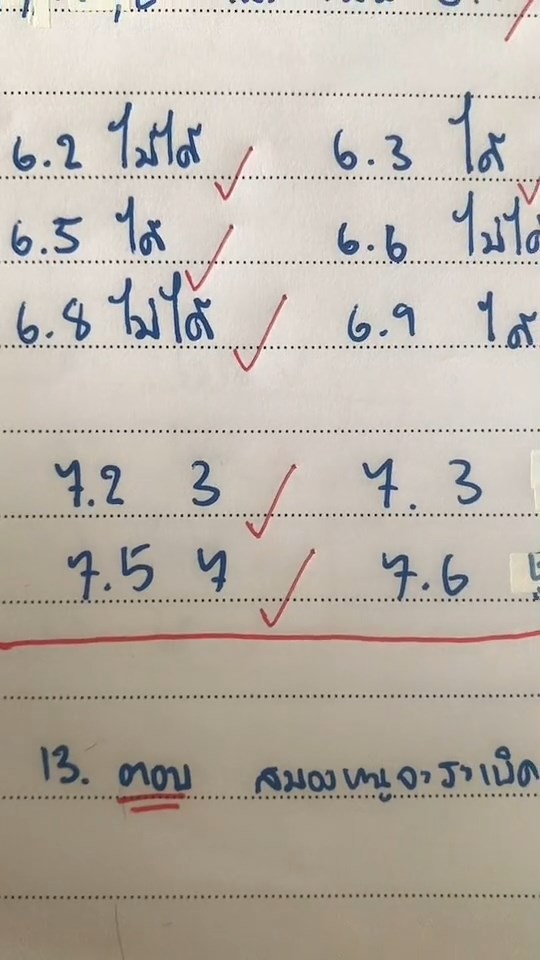 6.2 ไม่ได้ 6.3 ได้
6.5 ได้ 6.6 ไม่ได้
6.8 ไม่ได้ 6.9 ได้
7.2 3 7.3
7.5 7 7.6
13. ตอบ สมองหนูจะระเบิด